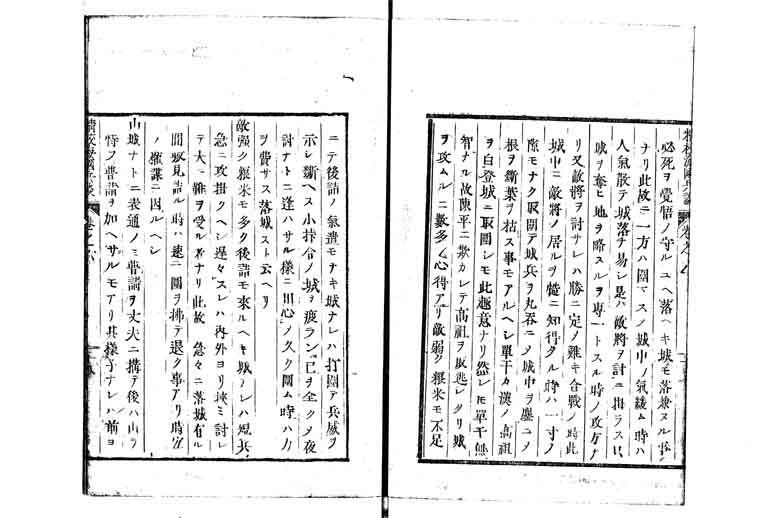 精校海國兵談 卷之八
必死ヲ覺悟ノ守ルユヘ落ヘキ城モ落兼ヌル
ナリ此故ニ一方ハ圍マスノ城中ノ氣緩ム時ハ
人氣散テ城落チ易シ是ハ敵將ヲ討ニ拘ラス只
城ヲ奪ヒ地ヲ略スルヲ專一トスル時ノ攻方ナ
リ又敵將ヲ討サレハ勝ニ定ノ難キ合戰ノ時此
城中ニ敵將ノ居ルヲ慥ニ知得タル時ハ一寸ノ
際モナク取圍テ城兵ヲ丸呑ニメ城中ヲ塵ニノ
根ヲ斷葉ヲ枯ス事モアルヘシ單于カ漢ノ高祖
ヲ白登城ニ取圍シモ此趣意ナリ然レモ單于無
智ナル故陳平ニ欺カレテ高祖ヲ取逃シタリ城
ヲ攻ムルニ數多ノ心得アリ敵弱ク粮米モ不足
ニテ後詰ノ氣遣モナキ城ナレハ打圍テ兵威ヲ
示シ斷ヘス小合ノ城ヲ疲ラシ已ヲ全クメ夜
討ナトニ逢ハサル樣ニ用心ノ久ク圍ム時ハ力
ヲ費サス落城スト云ヘリ
敵强ク粮米モ多ク後詰モ來ルヘキ城ナレハ短兵
急ニ攻掛クヘシ遲々スレハ内外ヨリ挾ミ討レ
テ大ニ難ヲ受ルモノナリ此故ニ急々ニ落城有ル
間敷見詰ル時ハ速ニ圍ヲ拂テ退ク事アリ時宜
ノ權謀ニ因ルヘシ
山城ナトニ表通ノミ普請ヲ丈夫ニ搆テ後ハ山ヲ
恃テ普請ヲ加ヘサルモアリ其樣子ナレハ前ヨ
精校海國兵談 卷之八